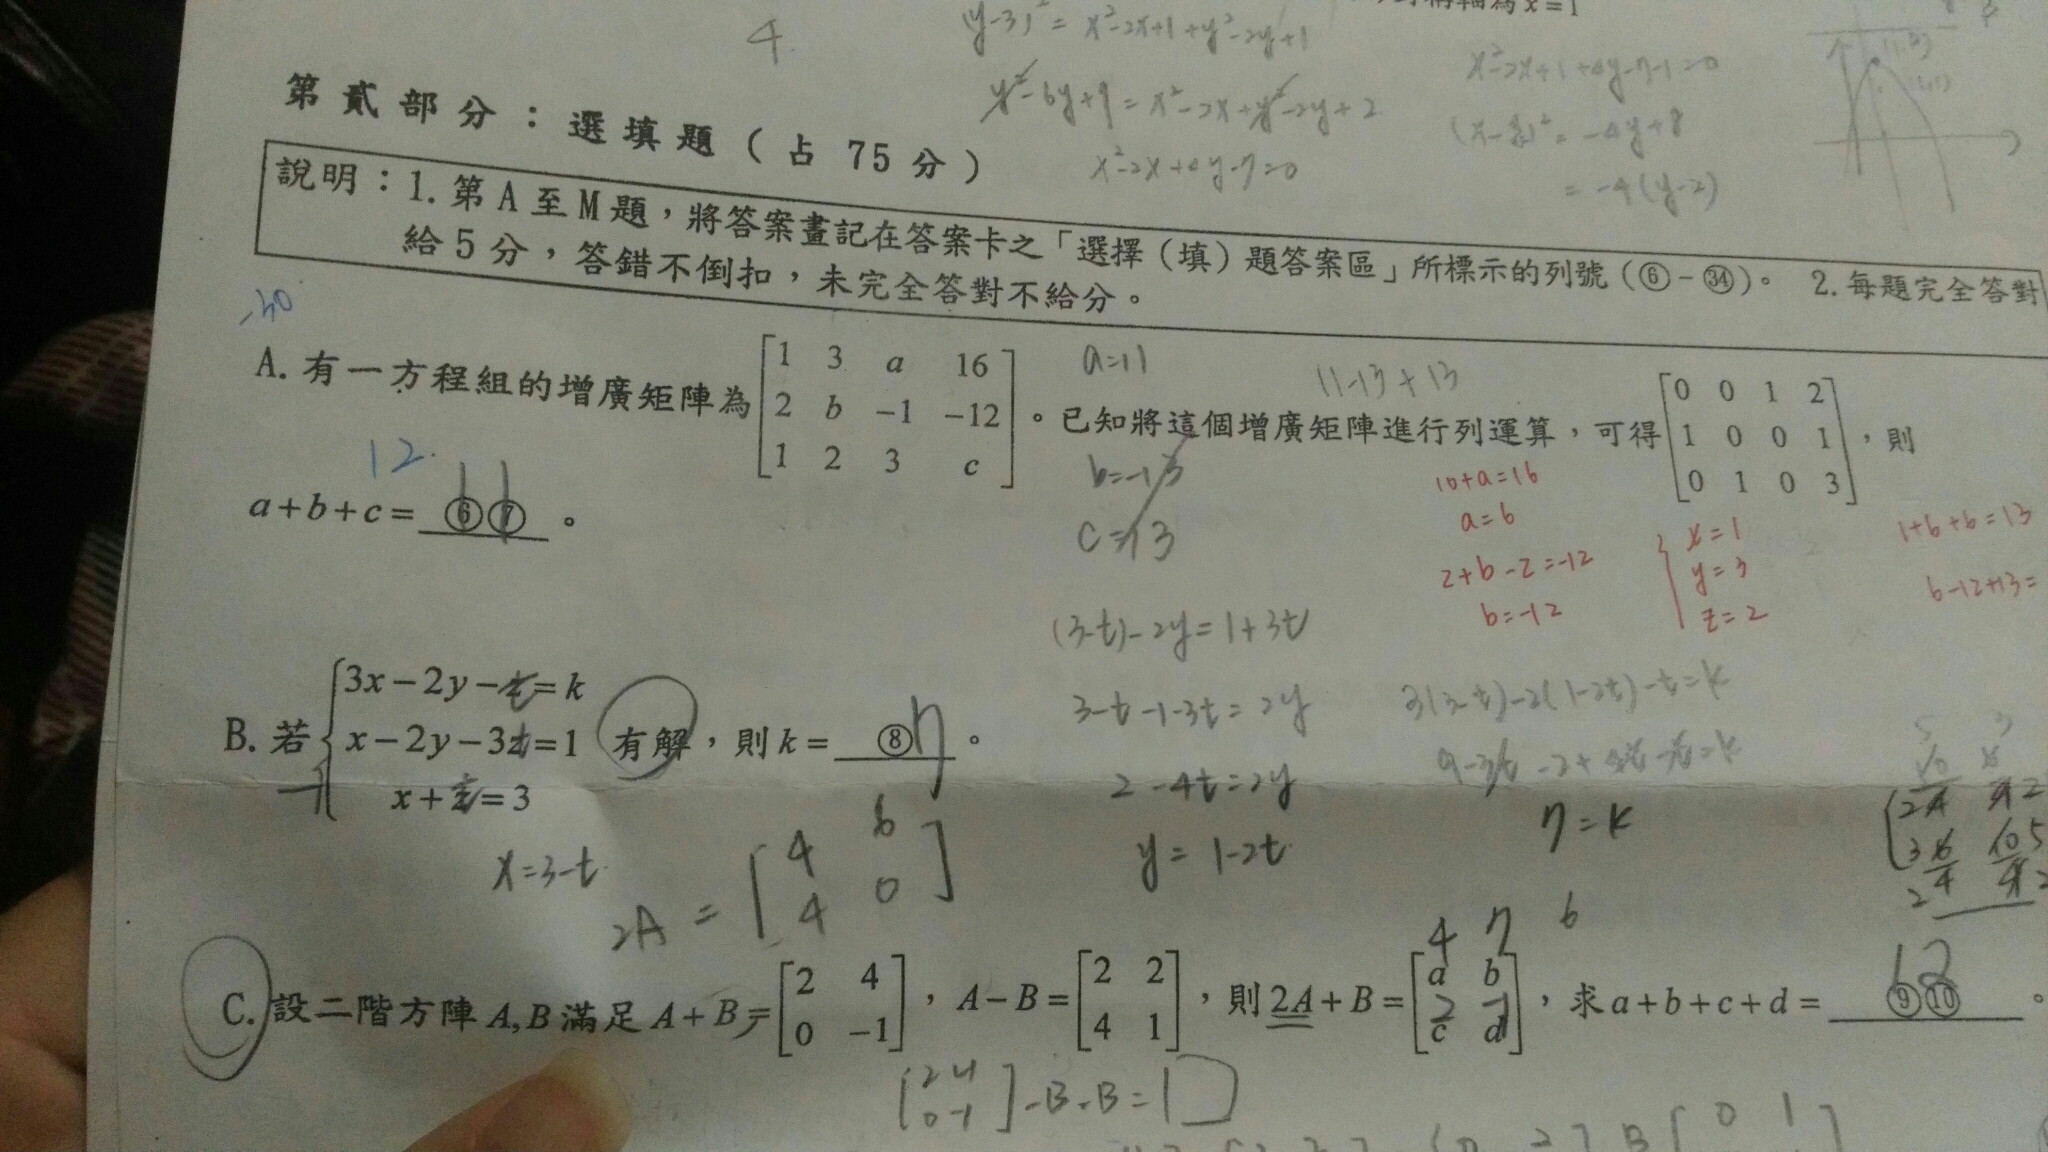 4
(y-3)² = x²-2x+1+y²-2y+1
y²-6y+9 = x²-2x+y²-2y+2
x²-2x+4y-7=0
x²-2x+1+4y-7-1=0
= -4y+8
= -4(y-2)
第貳部分：選填題（占 75 分）
說明：1. 第 A 至 M 題，將答案畫記在答案卡之「選擇（填）題答案區」所標示的列號（⑥-㉞）。 2. 每題完全答對
給 5 分，答錯不倒扣，未完全答對不給分。
A. 有一方程組的增廣矩陣為 [1 3 a 16; 2 b -1 -12; 1 2 3 c]。已知將這個增廣矩陣進行列運算，可得 [0 0 1 2; 1 0 0 1; 0 1 0 3]，則
a+b+c= ⑥⑦ 。
12
11
a=11
b=-13
c=13
11-13+13
10+a=16
a=6
2+b-2=-12
b=-12
x=1
y=3
z=2
1+6+6=13
6-12+13=
B. 若 { 3x-2y-t=k
x-2y-3t=1 有解，則 k= ⑧ 。
x+t=3
7
x=3-t
(3-t)-2y=1+3t
3-t-1-3t=2y
2-4t=2y
y=1-2t
3(3-t)-2(1-2t)-t=k
9-3t-2+4t-t=k
7=k
2A = [4 6; 4 0]
4 7 6
C. 設二階方陣 A,B 滿足 A+B=[2 4; 0 -1]，A-B=[2 2; 4 1]，則 2A+B=[a b; c d]，求 a+b+c+d= ⑨⑩ 。
2 -1
12
[2 4; 0 -1] -B-B=[ ]
0 1